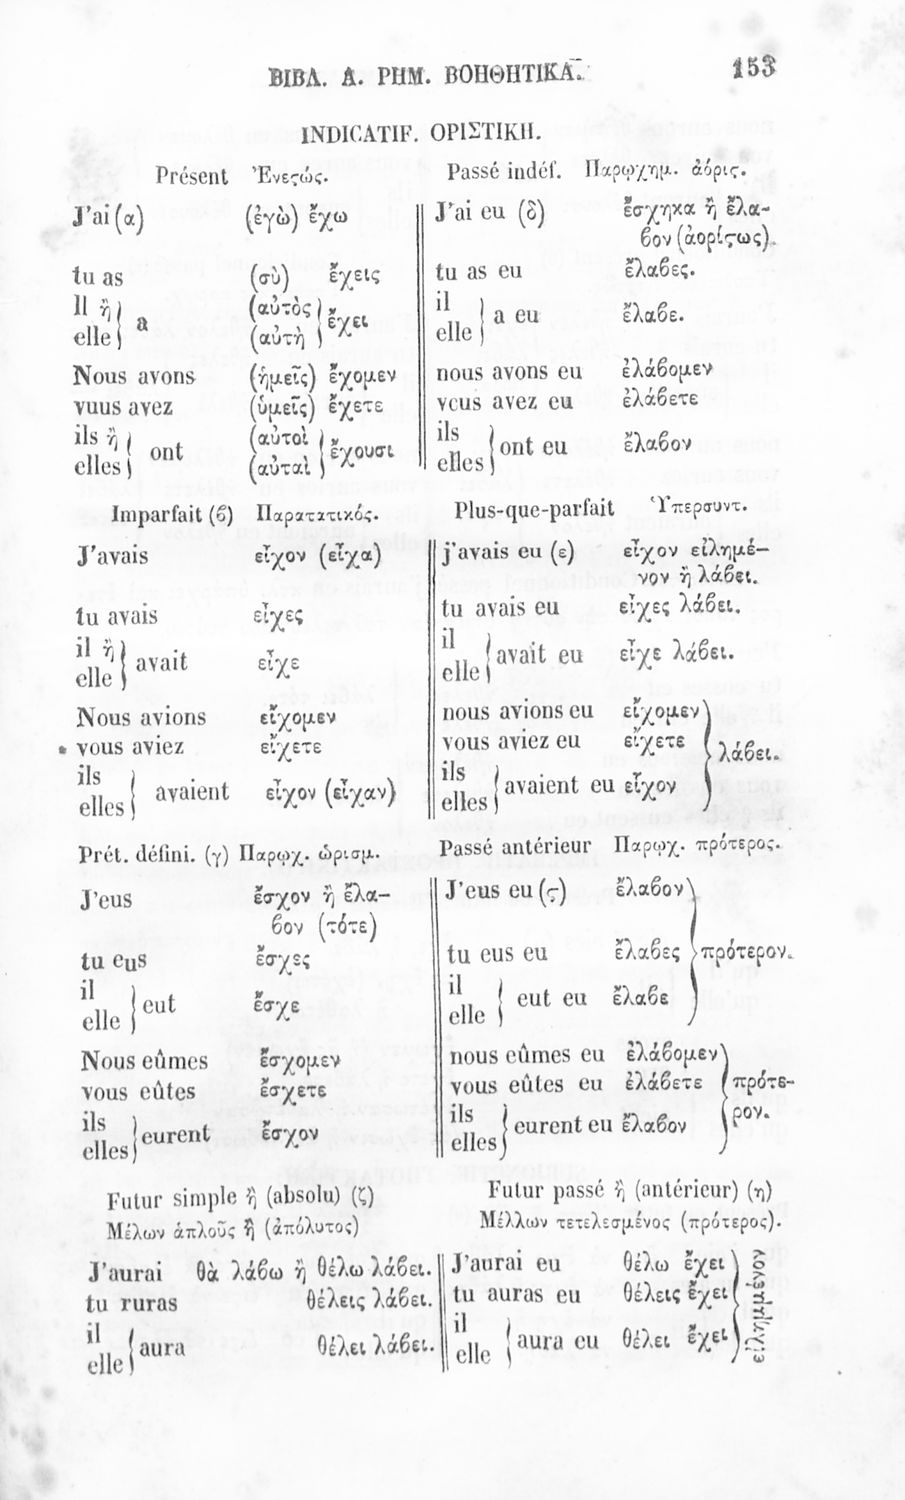 ΒΙΒΛ. Α. ΡΗΜ. ΒΟΗΘΗΤΙΚΑ.
153
INDICATIF. ΟΡΙΣΤΙΚΗ.
Présent Ἐνεϛώς.
J'ai (α) (ἐγὼ) ἔχω
tu as (σὺ) ἔχεις
Il ἢ (αὐτὸς
a ἔχει
elle (αὐτὴ
Nous avons (ἡμεῖς) ἔχομεν
vuus avez (ὑμεῖς) ἔχετε
ils ἢ (αὐτοὶ
ont ἔχουσι
elles (αὐταὶ
Passé indéf. Παρῳχημ. ἀόριϛ.
J'ai eu (δ) ἔσχηκα ἢ ἔλα-
βον (ἀορίϛως).
tu as eu ἔλαβες.
il
a eu ἔλαβε.
elle
nous avons eu ἐλάβομεν
vcus avez eu ἐλάβετε
ils
ont eu ἔλαβον
elles
Imparfait (β) Παρατατικός.
J'avais εἶχον (εἶχα)
tu avais εἶχες
il ἢ
avait εἶχε
elle
Nous avions εἴχομεν
vous aviez εἴχετε
ils
avaient εἶχον (εἶχαν)
elles
Plus-que-parfait Ὑπερσυντ.
j'avais eu (ε) εἶχον εἰλημέ-
νον ἢ λάβει.
tu avais eu εἶχες λάβει.
il
avait eu εἶχε λάβει.
elle
nous avions eu εἴχομεν
vous aviez eu εἴχετε λάβει.
ils
avaient eu εἶχον
elles
Prét. défini. (γ) Παρῳχ. ὡρισμ.
J'eus ἔσχον ἢ ἔλα-
βον (τότε)
tu eus ἔσχες
il
eut ἔσχε
elle
Nous eûmes ἔσχομεν
vous eûtes ἔσχετε
ils
eurent ἔσχον
elles
Passé antérieur Παρῳχ. πρότερος.
J'eus eu (ϛ) ἔλαβον
tu eus eu ἔλαβες πρότερον.
il
eut eu ἔλαβε
elle
nous eûmes eu ἐλάβομεν
vous eûtes eu ἐλάβετε πρότε-
ils ρον.
eurent eu ἔλαβον
elles
Futur simple ἢ (absolu) (ζ)
Μέλων ἁπλοῦς ἢ (ἀπόλυτος)
J'aurai θὰ λάβω ἢ θέλω λάβει.
tu ruras θέλεις λάβει.
il
aura θέλει λάβει.
elle
Futur passé ἢ (antérieur) (η)
Μέλλων τετελεσμένος (πρότερος).
J'aurai eu θέλω ἔχει
tu auras eu θέλεις ἔχει
il
aura eu θέλει ἔχει
elle